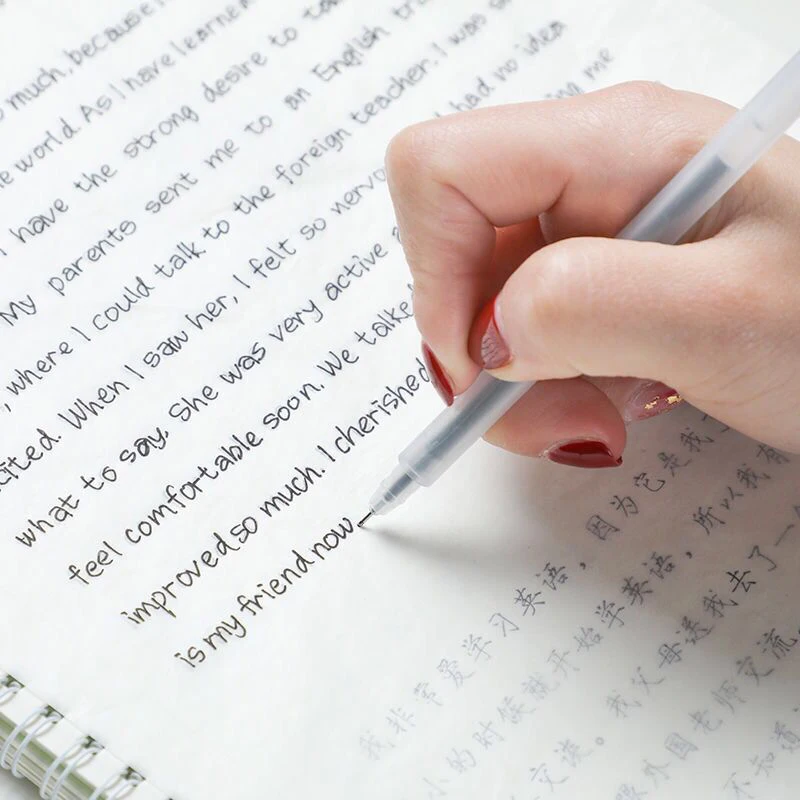 much, because
world. As I have learne
I have the strong desire to
My parents sent me to an English
, where I could talk to the foreign teacher. I was
cited. When I saw her, I felt so nervo had no idea
what to say. She was very active me
feel comfortable soon. We talked
improved so much. I cherished
is my friend now
我非常爱学习英语，因为它是我
小的时候就开始学英语，所以我有
交谈。我父母送我去了一
跟外国老师交流
不知道